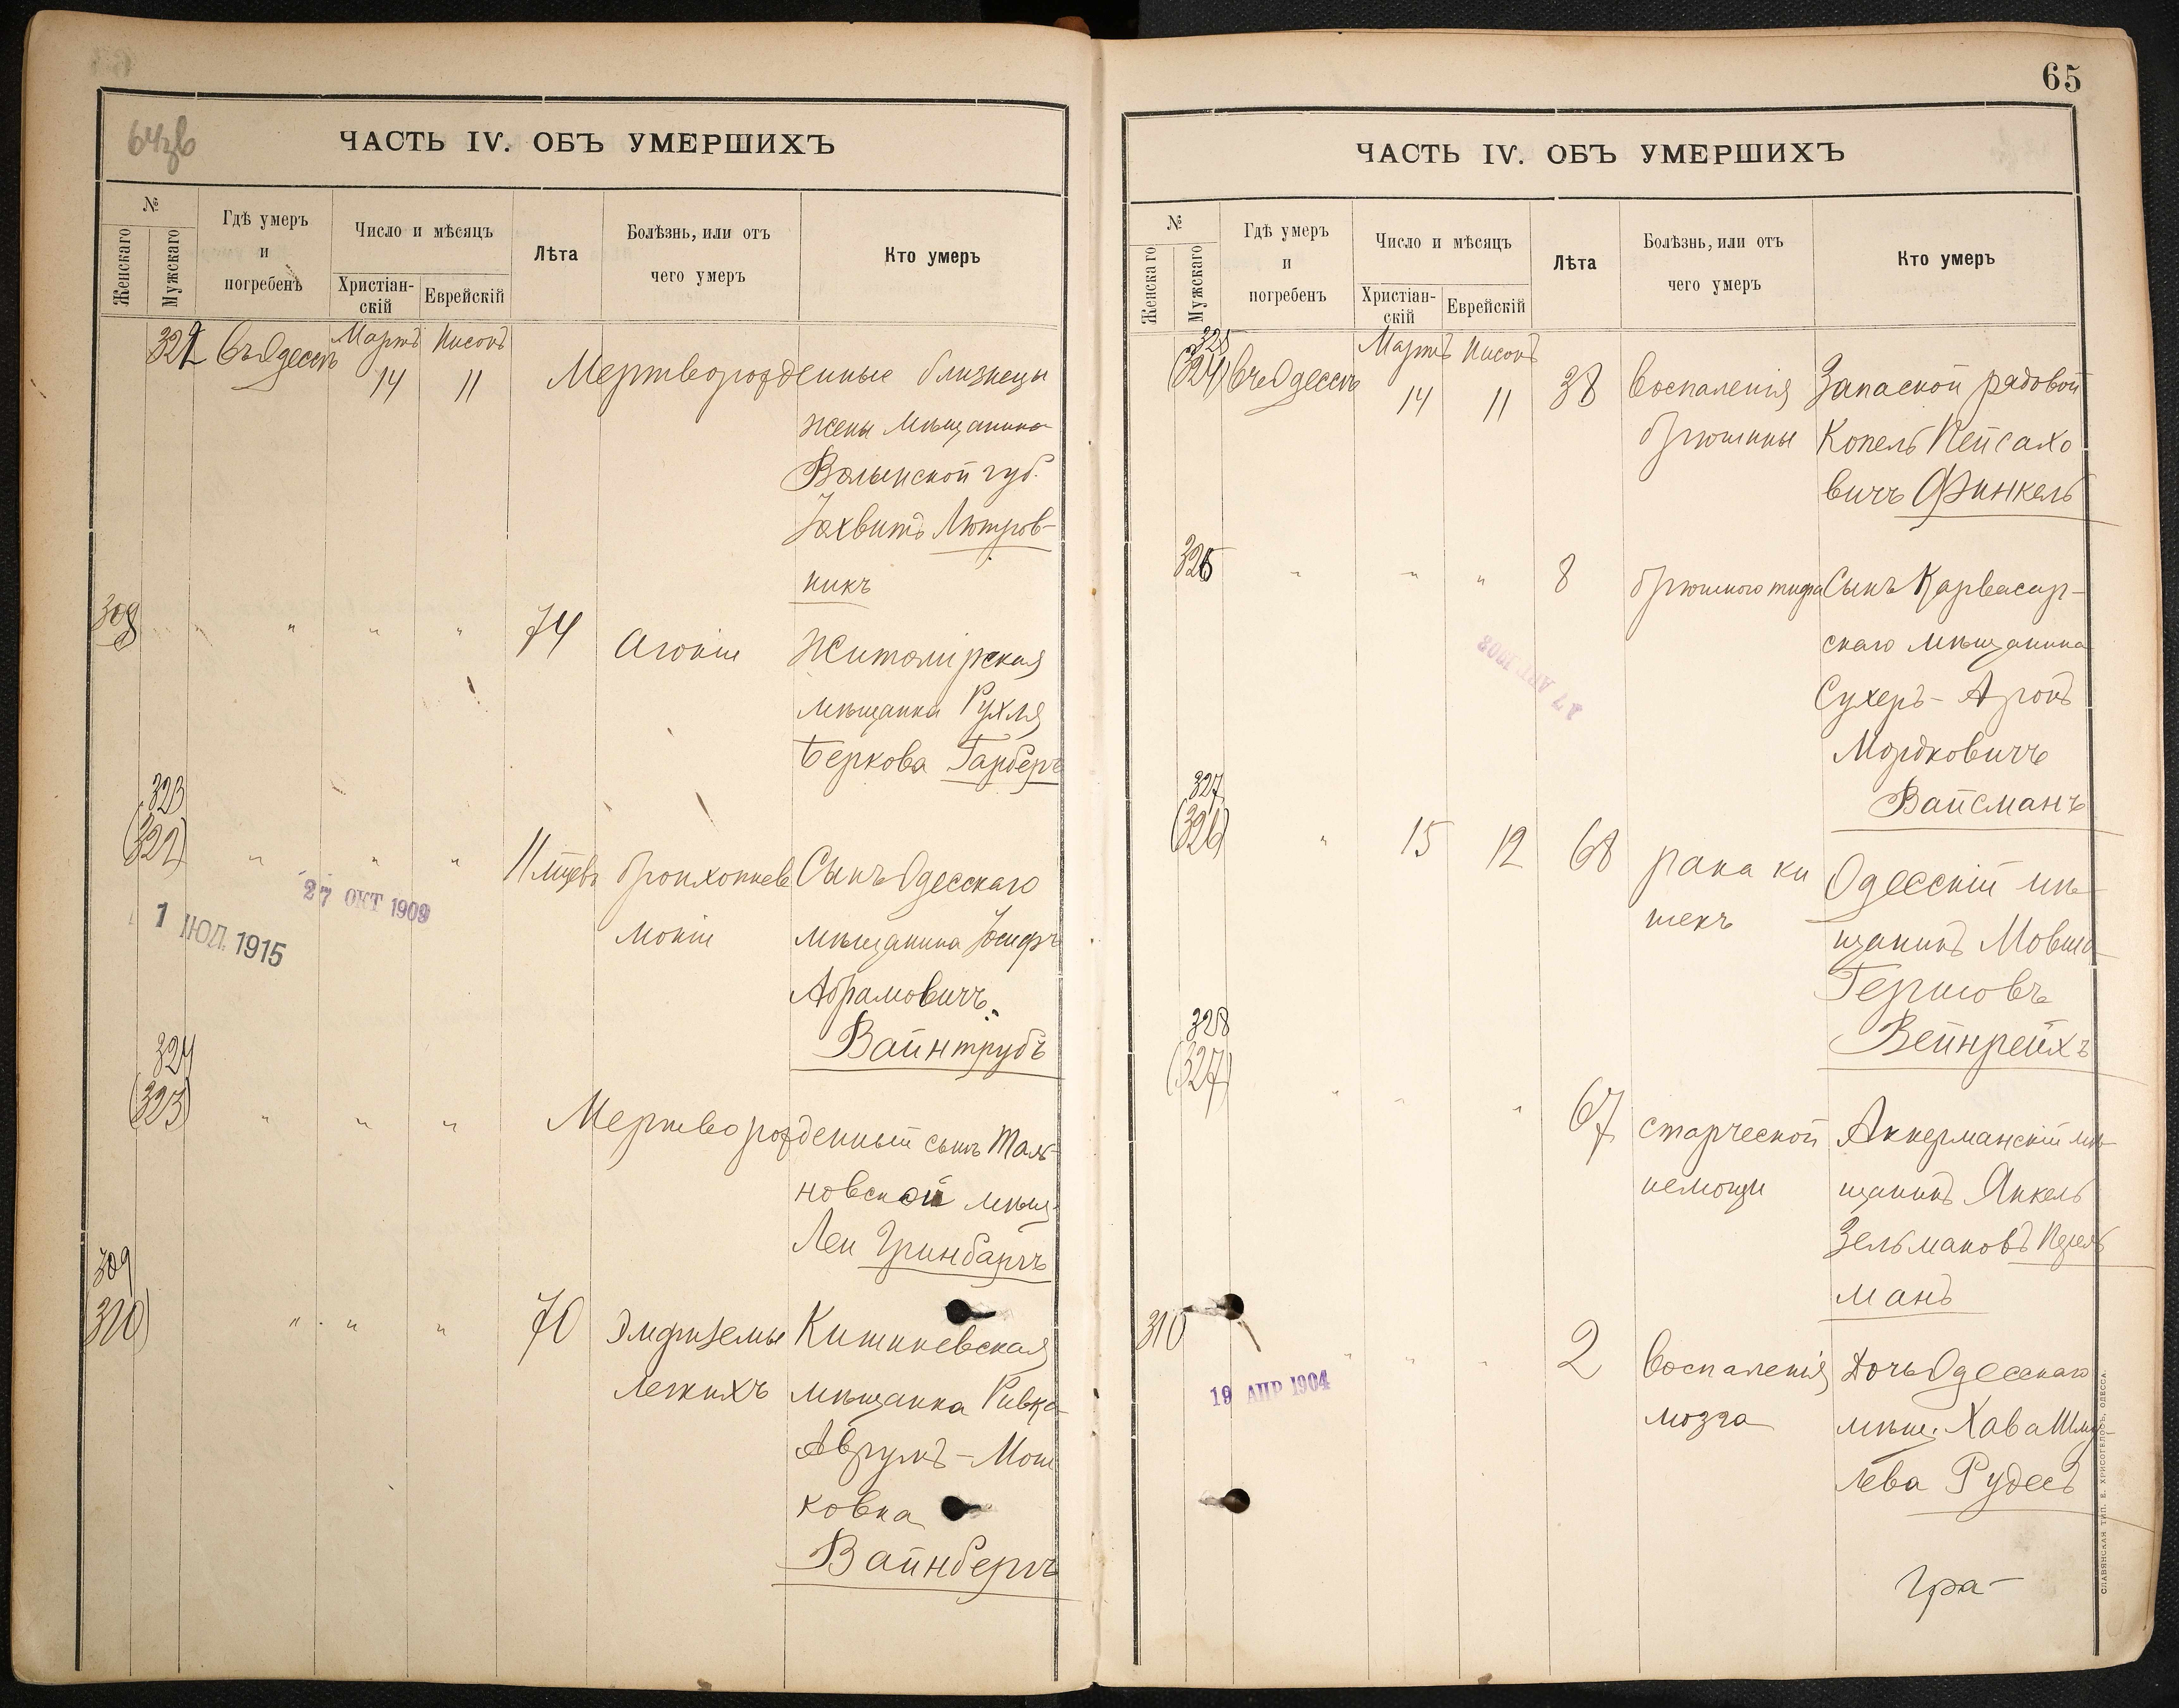 64зв
ЧАСТЬ IV. ОБЪ УМЕРШИХЪ
№
Женскаго
Мужскаго
Гдѣ умеръ
и
погребенъ
Число и мѣсяцъ
Христіан-
скій
Еврейскій
Лѣта
Болѣзнь, или отъ
чего умеръ
Кто умеръ
322 Въ Одессѣ Мартъ Нисонъ
14 11 Мертворожденные близнецы
жены мѣщанина
Волынской губ.
Лютров-
никъ
308 " " " 74 Агонiи Житомiрская
мѣщанка Рухля
Беркова Гарберъ
323
(322) " " " 11 мцевъ бронхопнев Сынъ Одесскаго
монiи мѣщанина Iосифъ
Абрамовичъ
Вайнтрубъ
27 ОКТ 1909
1 IЮЛ. 1915
324
(323) " " " Мертворожденный сынъ Таль-
новской мѣщ.
Леи Гринбаргъ
309
310) " " " 70 Эмфиземы Кишиневская
легкихъ мѣщанка Ривка
Аврумъ-Мош
ковна
Вайнбергъ
65
ЧАСТЬ IV. ОБЪ УМЕРШИХЪ
№
Женскаго
Мужскаго
Гдѣ умеръ
и
погребенъ
Число и мѣсяцъ
Христіан-
скій
Еврейскій
Лѣта
Болѣзнь, или отъ
чего умеръ
Кто умеръ
325
(324) Въ Одессѣ Мартъ Нисонъ
14 11 38 Воспаленiя Запасной рядовой
брюшины Копель Пейсахо
вичъ Финкель
326 " " " 8 брюшного тифа Сынъ Карвасар-
скаго мѣщанина
Сухеръ-Аронъ
Мордковичъ
Вайсманъ
327
(326) " 15 12 68 рака ки Одесскiй мѣ-
шекъ щанинъ Мовша
Гершовъ
Вейнрейхъ
328
(327) " " " 67 старческой Аккерманскiй мѣ-
немощи щанинъ Янкель
Зельмановъ Перель
манъ
310 " " " 2 Воспаленiя Дочь Одесскаго
мозга мѣщ. Хава Шму
лева Рудесъ
19 АПР 1904
Гра-
СЛАВЯНСКАЯ ТИП. Е. ХРИСОГЕЛОСЪ, ОДЕССА.